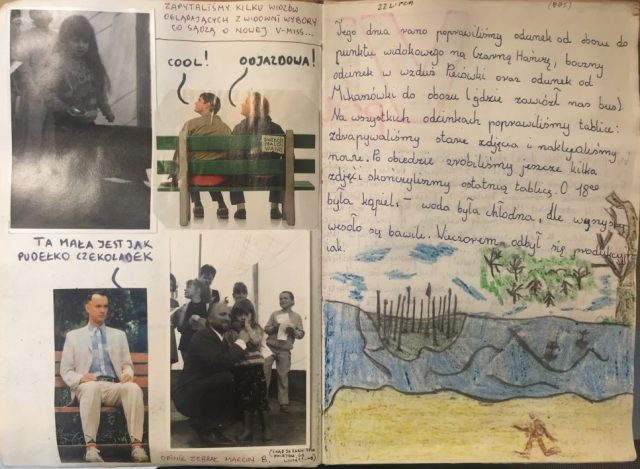 ZAPYTALIŚMY KILKU WIDZÓW
OGLĄDAJĄCYCH Z WIDOWNI WYBORY
CO SĄDZĄ O NOWEJ V-MISS...
COOL!
ODJAZDOWA!
ŚWIEŻO
MALO
WANE
TA MAŁA JEST JAK
PUDEŁKO CZEKOLADEK
OPINIE ZEBRAŁ MARCIN B.
22 LIPCA
Tego dnia rano poprawiliśmy odcinek od obozu do
punktu widokowego na Czarną Hańczę, boczny
odcinek w wzdłuż oraz odcinek od
Mikaszówki do obozu (gdzie zawiózł nas bus)
Na wszystkich odcinkach poprawiliśmy tablice:
zdrapywaliśmy stare zdjęcia i naklejaliśmy
nowe. Po obiedzie zrobiliśmy jeszcze kilka
zdjęć i skończyliśmy ostatnią tablicę. O 18⁰⁰
była kąpiel, – woda była chłodna, dle wszyscy
wesoło się bawili. Wieczorem odbył się